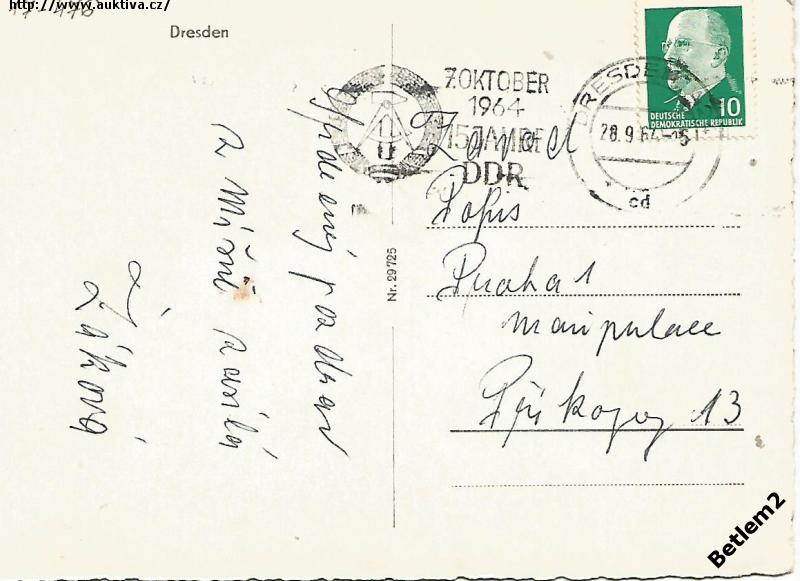 http://www.auktiva.cz/
Dresden
7.OKTOBER
1964
15 JAHRE
DDR
DRESDEN
28.9.64
cd
10
DEUTSCHE
DEMOKRATISCHE REPUBLIK
Nr. 29 725
Srdečný pozdrav
z Míšně zasílá
Žáková
Popis
Praha 1
manipulace
Příkopy 13
Betlem2